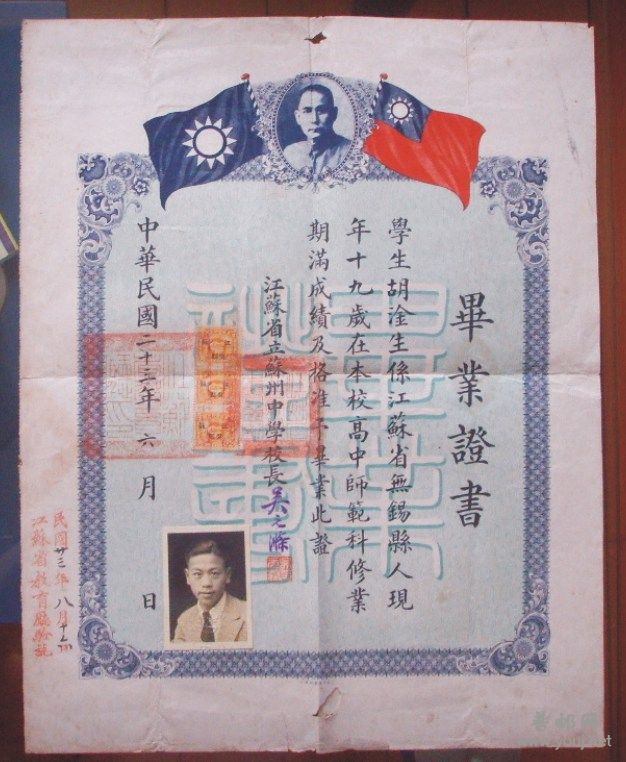 畢業證書
學生胡淦生係江蘇省無錫縣人現
年十九歲在本校高中師範科修業
期滿成績及格准予畢業此證
江蘇省立蘇州中學校長吳元滌
中華民國二十三年六月 日
民國廿三年八月十
江蘇省教育廳驗訖